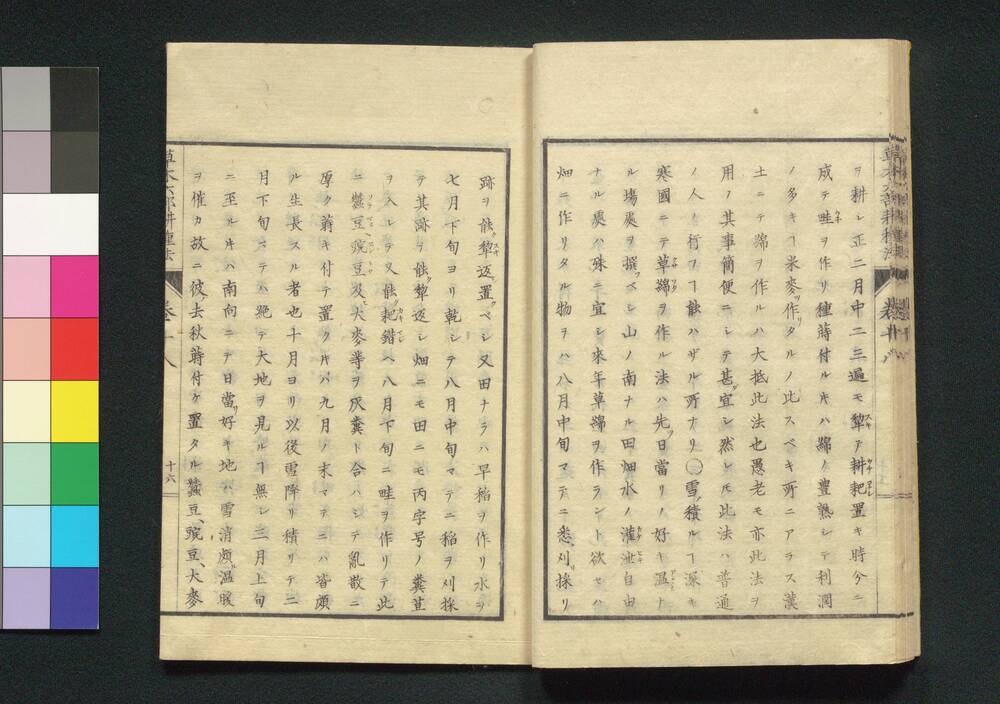 ヲ耕シ正二月中二三遍モ犂テ耕耙置キ時分ニ
成テ畦ヲ作リ種蒔付ルキハ綿ノ豊熟シテ利潤
ノ多キヿ米麥ヲ作タルノ比スベキ所ニアラス漢
土ニテ綿ヲ作ルハ大抵此法也愚老モ亦此法ヲ
用ノ其事簡便ニシテ甚宜シ然レモ此法ハ普通
ノ人ノ行フヿ能ハザル所ナリ○雪積ルヿ深キ
寒國ニテ草綿ヲ作ル法ハ先日當リノ好キ温ナ
ル塲處ヲ撰ベシ山ノ南ナル田畑水ノ灌泄自由
ナル處ハ殊ニ宜シ來年草綿ヲ作ラント欲セハ
畑ニ作リタル物ヲハ八月中旬マテニ悉刈採リ
跡ヲ能犂返置ベシ又田ナラハ早稲ヲ作リ水ヲ
七月下旬ヨリ乾シテ八月中旬マテニ稲ヲ刈採
テ其跡ヲ能犂返シ畑ニモ田ニモ丙字号ノ糞苴
ヲ入レテ又能耙錯ヘ八月下旬ニ畦ヲ作リテ此
ニ蠶豆豌豆及大麥等ヲ灰糞ト合ハシテ亂散ニ
厚ク蒔キ付テ置ク片ハ九月ノ末マテニハ皆頗
ル生長スル者也十月ヨリ以後雪降リ積リテ二
月下旬マテハ絶テ大地ヲ見ルヿ無シ三月上旬
ニ至ル片ハ南向ニテ日當好キ地ハ雪消頗温暖
ヲ催カ故ニ彼去秋蒔付ケ置タル蠶豆、豌豆、大麥
草木六部耕種法
巻十八
十六